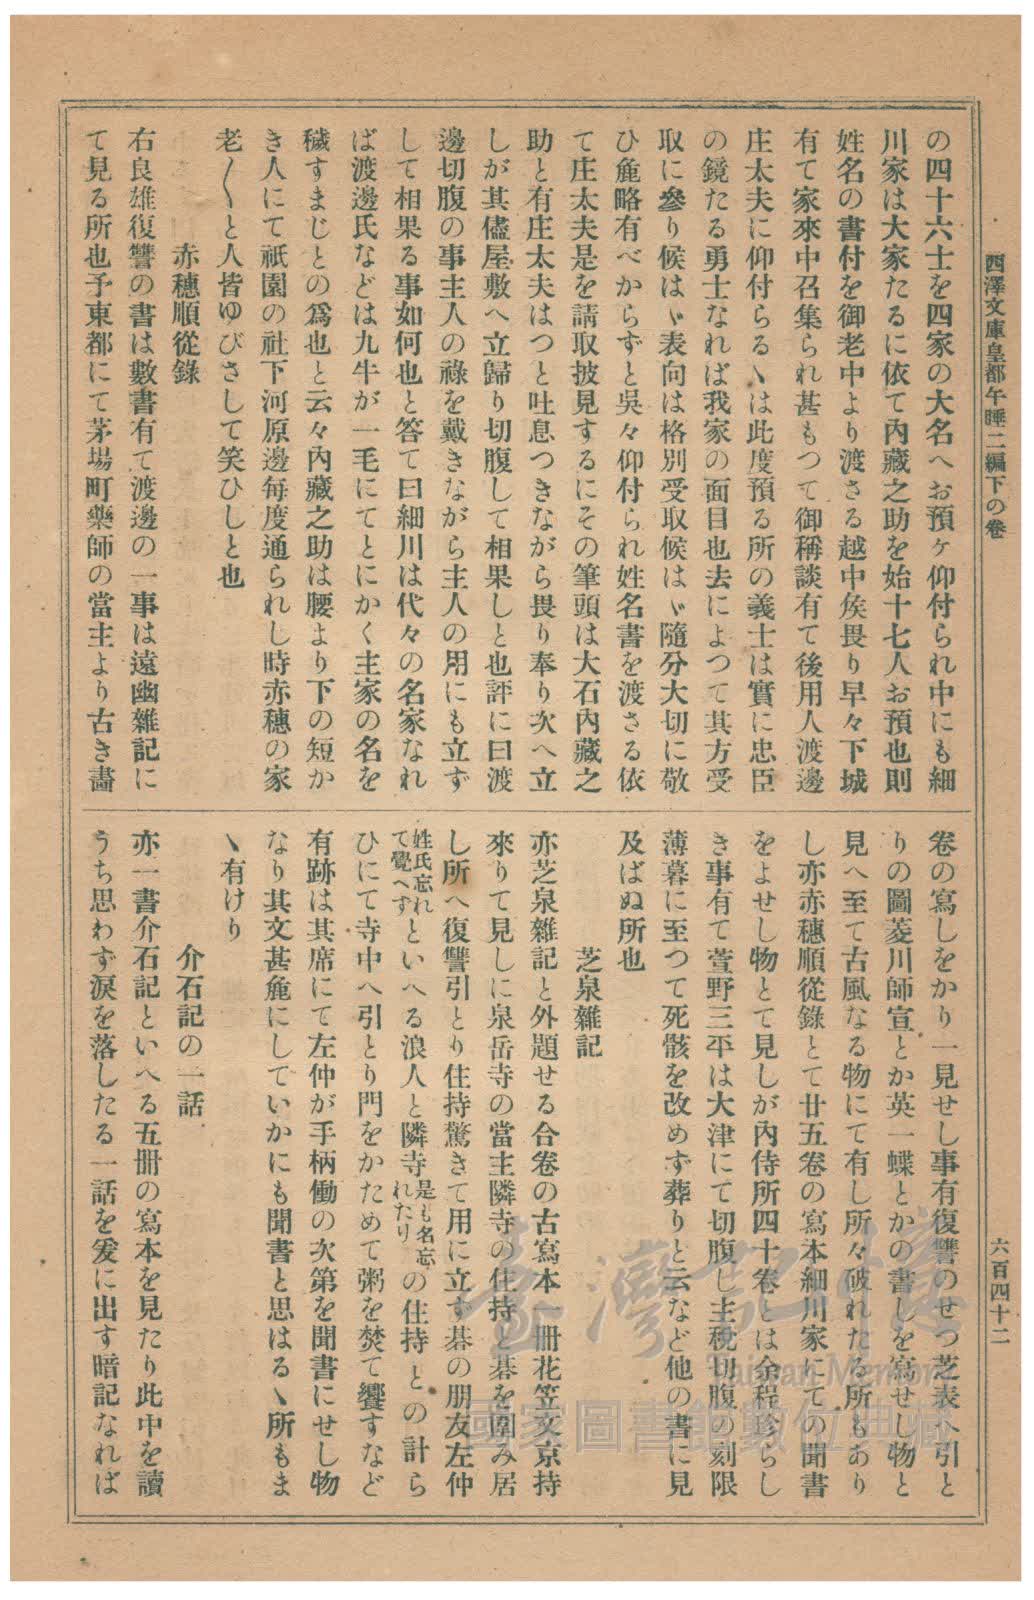 西澤文庫皇都午睡二編下の卷
六百四十二
の四十六士を四家の大名へお預ヶ仰付られ中にも細
川家は大家たるに依て內藏之助を始十七人お預也則
姓名の書付を御老中より渡さる越中矦畏り早々下城
有て家來中召集られ甚もつて御稱談有て後用人渡邊
庄太夫に仰付らるヽは此度預る所の義士は實に忠臣
の鏡たる勇士なれば我家の面目也去によつて其方受
取に參り候はヾ表向は格別受取候はヾ隨分大切に敬
ひ麁略有べからずと吳々仰付られ姓名書を渡さる依
て庄太夫是を請取披見するにその筆頭は大石內藏之
助と有庄太夫はつと吐息つきながら畏り奉り次へ立
しが其儘屋敷へ立歸り切腹して相果しと也評に曰渡
邊切腹の事主人の祿を戴きながら主人の用にも立ず
して相果る事如何也と答て曰細川は代々の名家なれ
ば渡邊氏などは九牛が一毛にてとにかく主家の名を
穢すまじとの爲也と云々內藏之助は腰より下の短か
き人にて祇園の社下河原邊每度通られし時赤穗の家
老〳〵と人皆ゆびさして笑ひしと也
赤穗順從錄
右良雄復讐の書は數書有て渡邊の一事は遠幽雜記に
て見る所也予東都にて茅場町藥師の當主より古き畵
卷の寫しをかり一見せし事有復讐のせつ芝表へ引と
りの圖菱川師宣とか英一蝶とかの書しを寫せし物と
見へ至て古風なる物にて有し所々破れたる所もあり
し亦赤穗順從錄とて廿五卷の寫本細川家にての聞書
をよせし物とて見しが內侍所四十卷とは余程珍らし
き事有て萱野三平は大津にて切腹し主稅切腹の刻限
薄暮に至つて死骸を改めず葬りと云など他の書に見
及ばぬ所也
芝泉雜記
亦芝泉雜記と外題せる合卷の古寫本一冊花笠文京持
來りて見しに泉岳寺の當主隣寺の住持と碁を圍み居
し所へ復讐引とり住持驚きて用に立ず碁の朋友左仲
姓氏忘れて覺へずといへる浪人と隣寺是も名忘れたりの住持との計ら
ひにて寺中へ引とり門をかためて粥を焚て饗すなど
有跡は其席にて左仲が手柄働の次第を聞書にせし物
なり其文甚麁にしていかにも聞書と思はるヽ所もま
ヽ有けり
介石記の一話
亦一書介石記といへる五冊の寫本を見たり此中を讀
うち思わず淚を落したる一話を爰に出す暗記なれば
臺灣記憶
Taiwan Memory
國家圖書館數位典藏